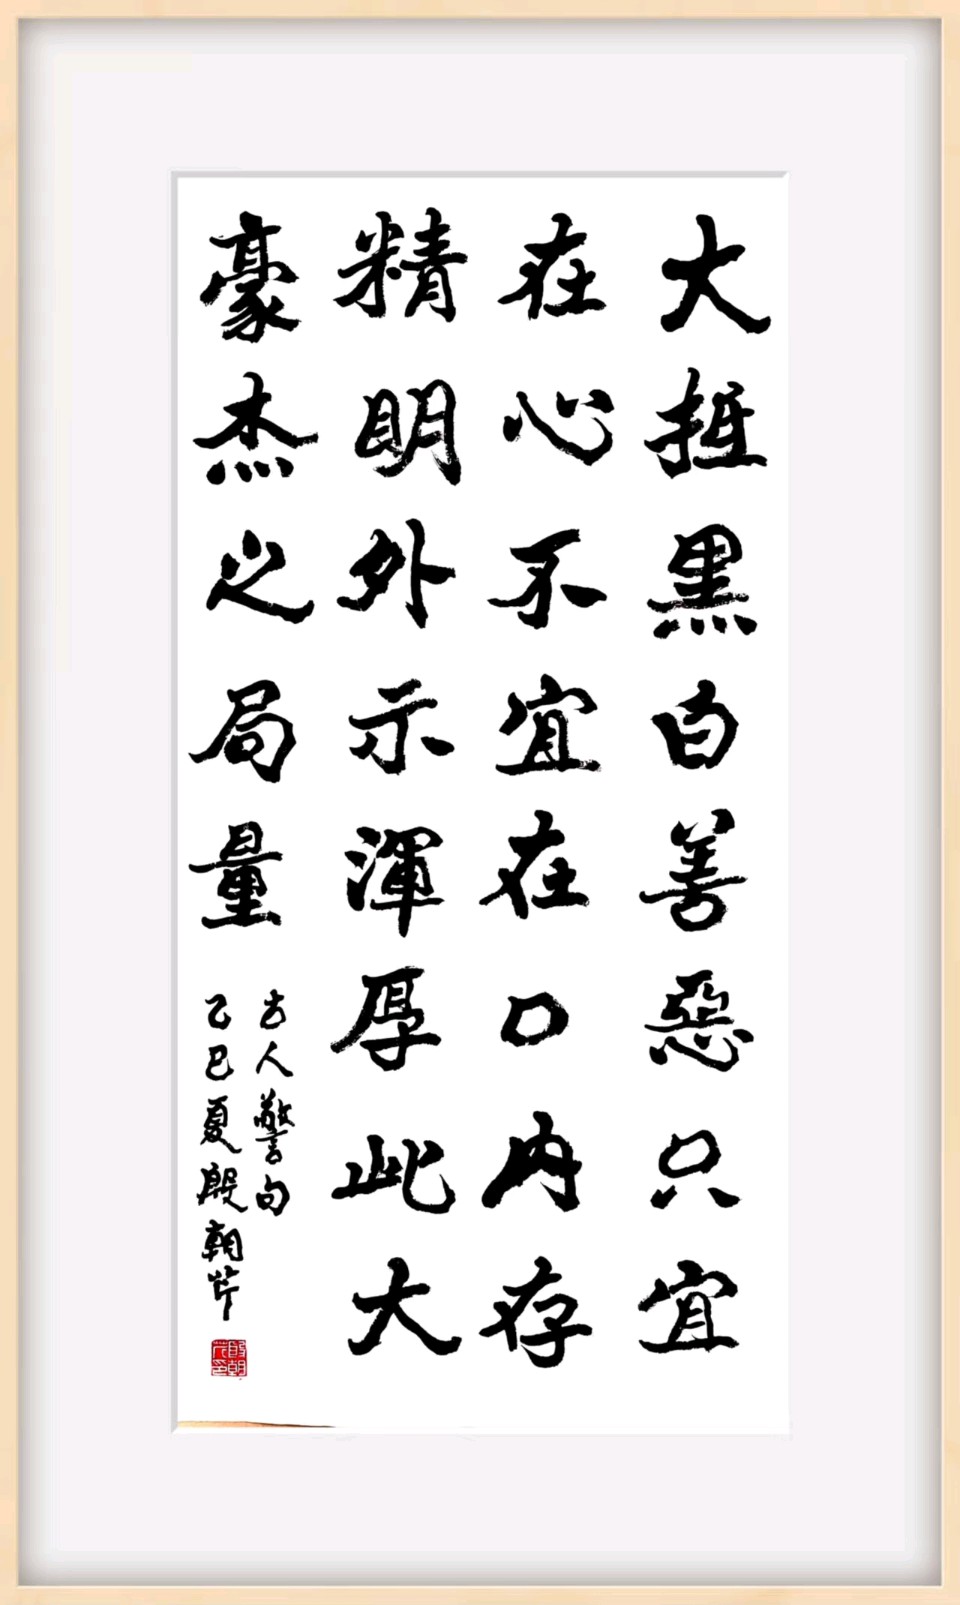 大抵黑白善惡只宜
在心不宜在口内存
精明外示渾厚此大
豪杰之局量
古人警句
乙巳夏殷朝芹